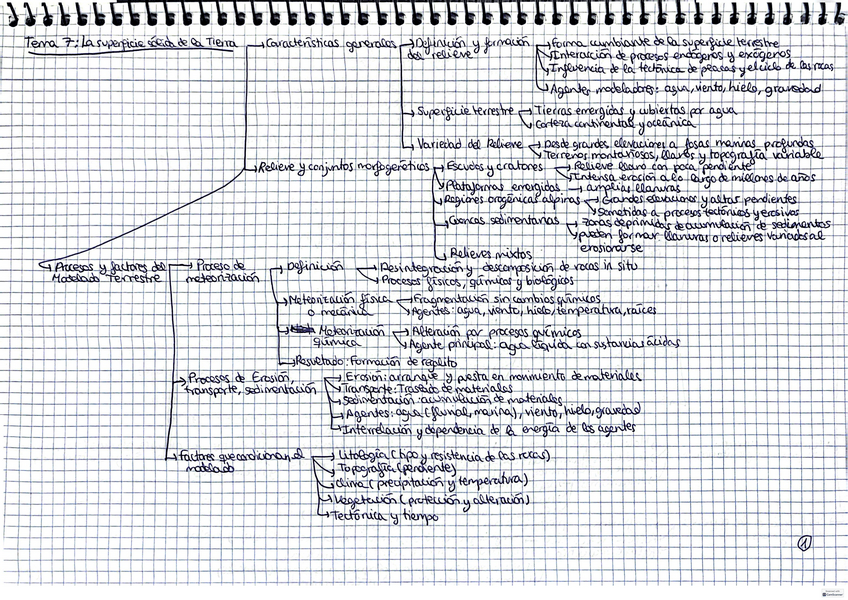 Tema 7: La superficie sólida de la Tierra
Características generales
Definición y formación
del relieve
Forma cambiante de la superficie terrestre
Interacción de procesos endógenos y exógenos
Influencia de la tectónica de placas y el ciclo de las rocas
Agentes modeladores: agua, viento, hielo, gravedad
Superficie terrestre
Tierras emergidas y cubiertas por agua
Corteza continental y oceánica
Variedad del Relieve
Desde grandes elevaciones a fosas marinas profundas
Terrenos montañosos, llanos y topografía variable
Relieve y conjuntos morfogenéticos
Escudos y cratones
Relieve llano con poca pendiente
Intensa erosión a lo largo de millones de años
Plataformas emergidas
amplias llanuras
Regiones orogénicas alpinas
Grandes elevaciones y altas pendientes
Sometidas a procesos tectónicos y erosivos
Cuencas sedimentarias
Zonas deprimidas de acumulación de sedimentos
pueden formar llanuras o relieves variados al
erosionarse
Relieves mixtos
Procesos y factores del
Modelado Terrestre
Proceso de
meteorización
Definición
Desintegración y descomposición de rocas in situ
Procesos físicos, químicos y biológicos
Meteorización física
o mecánica
Fragmentación sin cambios químicos
Agentes: agua, viento, hielo, temperatura, raíces
Meteorización
química
Alteración por procesos químicos
Agente principal: agua líquida con sustancias ácidas
Resultado: Formación de regolito
Procesos de Erosión,
transporte, sedimentación
Erosión: arranque y puesta en movimiento de materiales
Transporte: Traslado de materiales
Sedimentación: acumulación de materiales
Agentes: agua (fluvial, marina), viento, hielo, gravedad
Interrelación y dependencia de la energía de los agentes
Factores que condicionan el
modelado
Litología (tipo y resistencia de las rocas)
Topografía (pendiente)
Clima (precipitación y temperatura)
Vegetación (protección y alteración)
Tectónica y tiempo
1
CamScanner